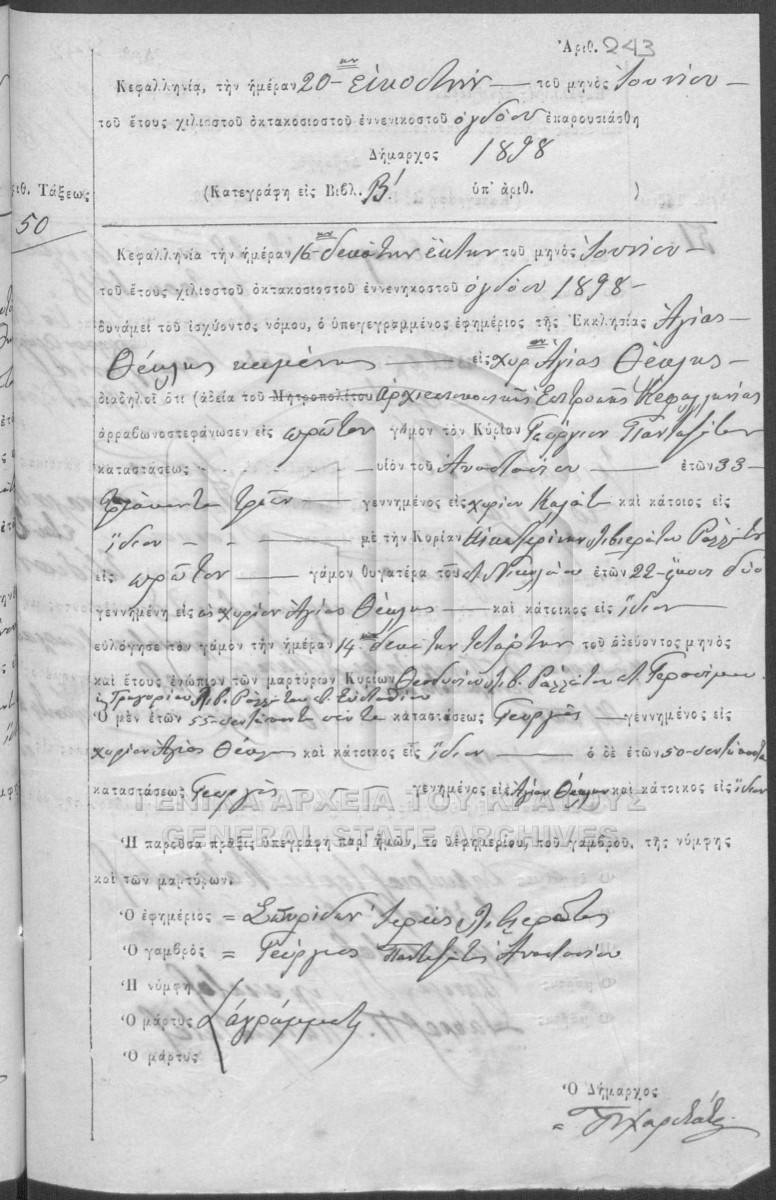 Ἀριθ. 243
Κεφαλληνία, τὴν ἡμέραν 20ην Εἰκοστὴν τοῦ μηνὸς Ἰουνίου
τοῦ ἔτους χιλιοστοῦ ὀκτακοσιοστοῦ ἐννενικοστοῦ ὀγδόου ἐπαρουσιάσθη
Δήμαρχος 1898
ριθ. Τάξεως
(Κατεγράφη εἰς Βιβλ. Β! ὑπ' ἀριθ. )
50
Κεφαλληνία τὴν ἡμέραν 16ην δεκάτην ἕκτην τοῦ μηνὸς Ἰουνίου
τοῦ ἔτους χιλιοστοῦ ὀκτακοσιοστοῦ ἐννενηκοστοῦ ὀγδόου 1898
δυνάμει τοῦ ἰσχύοντος νόμου, ὁ ὑπογεγραμμένος ἐφημέριος τῆς Ἐκκλησίας Ἁγίας
Θέκλης εἰς χωρίον Ἁγίας Θέκλης
διαδηλοῖ ὅτι (ἀδεία τοῦ Μητροπολίτου Ἀρχιεπισκοπικῆς Ἐπιτροπῆς Κεφαλληνίας
ἀρραβωνοστεφάνωσεν εἰς πρῶτον γάμον τὸν Κύριον Γεώργιον Πανταζάτον
καταστάσεως υἱὸν τοῦ Ἀναστασίου ἐτῶν 33
τριάκοντα τριῶν γεννημένος εἰς χωρίον Καλάτα καὶ κάτοιος εἰς
ἴδιον μὲ τὴν Κυρίαν Αἰκατερίναν Λιβιεράτου Ραλλάτου
εἰς πρῶτον γάμον θυγατέρα τοῦ Νικολάου ἐτῶν 22 εἴκοσι δύο
γεννημένη εἰς χωρίον Ἁγίας Θέκλης καὶ κάτοικος εἰς ἴδιον
εὐλόγησε τὸν γάμον τὴν ἡμέραν 14ην δεκάτην τετάρτην τοῦ ὁδεύοντος μηνὸς
καὶ ἔτους ἐνώπιον τῶν μαρτύρων Κυρίων Θεοδοσίου Λιβ. Ραλλάτου Γερασίμου
Γρηγορίου Λιβ. Ραλλάτου Εὐσταθίου
Ὁ μὲν ἐτῶν 55 πεντήκοντα πέντε καταστάσεως Γεωργὸς γεννημένος εἰς
χωρίον Ἁγίας Θέκλης καὶ κάτοικος εἰς ἴδιον ὁ δὲ ἐτῶν 50 πεντήκοντα
καταστάσεως Γεωργὸς γεννημένος εἰς Ἁγίαν Θέκλαν καὶ κάτοικος εἰς ἴδιον
ΓΕΝΙΚΑ ΑΡΧΕΙΑ ΤΟΥ ΚΡΑΤΟΥΣ
GENERAL STATE ARCHIVES
Ἡ παροῦσα πρᾶξις ὑπεγράφη παρ' ἡμῶν, τοῦ ἐφημερίου, τοῦ γαμβροῦ, τῆς νύμφης
καὶ τῶν μαρτύρων.
Ὁ ἐφημέριος = Σπυρίδων Ἱερεὺς Λιβιεράτος
Ὁ γαμβρὸς = Γεώργιος Πανταζάτος Ἀναστασίου
Ἡ νύμφη
Ὁ μάρτυς ἀγράμματοι
Ὁ μάρτυς
Ὁ Δήμαρχος